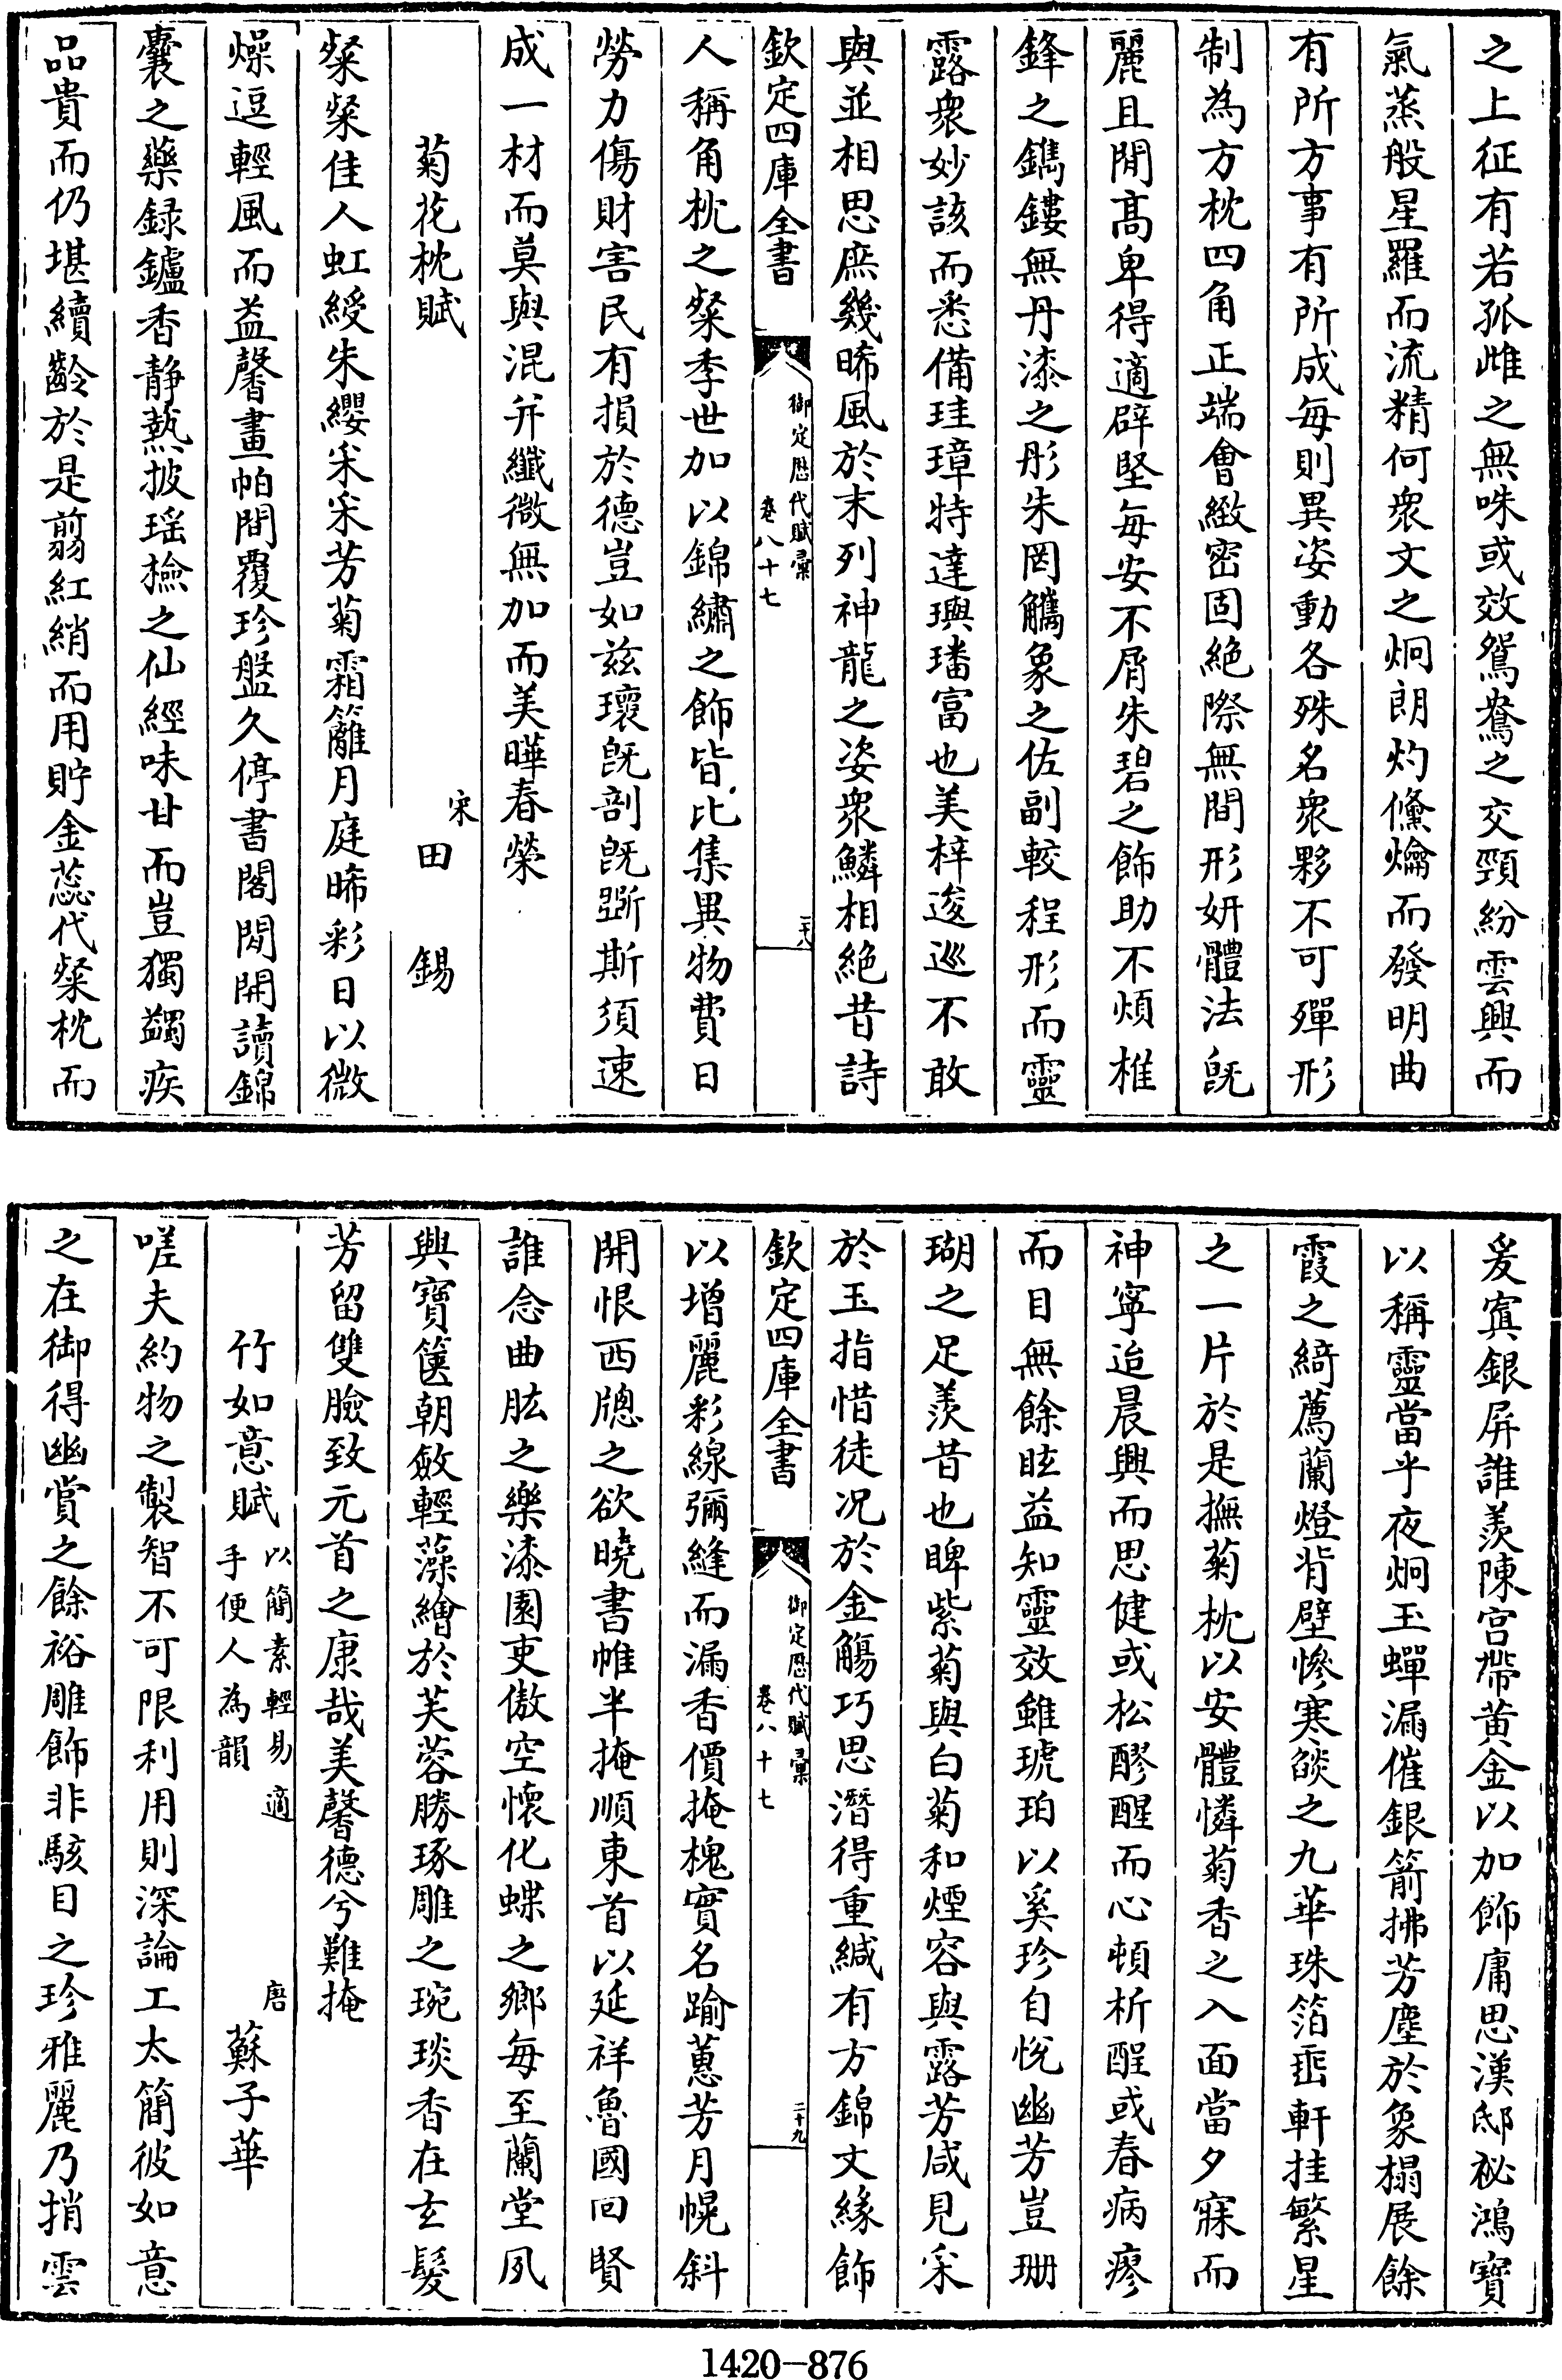 之上征有若孤雌之無咮或效鴛鴦之交頸紛雲興而
氣蒸般星羅而流精何衆文之炯朗灼儵爚而發明曲
有所方事有所成每則異姿動各殊名衆夥不可殫形
制為方枕四角正端會緻密固絶際無間形妍體法既
麗且閒髙卑得適辟堅每安不屑朱碧之飾助不煩椎
鋒之鐫鏤無丹漆之彤朱罔觿象之佐副較程形而靈
露衆妙該而悉備珪璋特達璵璠富也美梓逡巡不敢
與並相思庶幾晞風於末列神龍之姿衆鱗相絶昔詩
欽定四庫全書
御定歷代賦彙
卷八十七
二十八
人稱角枕之粲季世加以錦繡之飾皆比集異物費日
勞力傷財害民有損於德豈如兹瓌既剖既斲斯須速
成一材而莫與混并纖微無加而美曄春榮
菊花枕賦
宋 田錫
粲粲佳人虹綬朱纓采采芳菊霜籬月庭晞彩日以微
燥逗輕風而益馨畫帕間覆珍盤久停書閣閒開讀錦
囊之藥録鑪香静爇披瑶檢之仙經味甘而豈獨蠲疾
品貴而仍堪續齡於是翦紅綃而用貯金蕊代粲枕而
爰寘銀屏誰羨陳宫帶黄金以加飾庸思漢邸祕鴻寶
以稱靈當乎夜炯玉蟬漏催銀箭拂芳塵於象榻展餘
霞之綺薦蘭燈背壁慘寒燄之九華珠箔垂軒挂繁星
之一片於是撫菊枕以安體憐菊香之入面當夕寐而
神寧迨晨興而思健或松醪醒而心頓析酲或春病瘳
而目無餘眩益知靈效雖琥珀以奚珍自悦幽芳豈珊
瑚之足羨昔也睥紫菊與白菊和煙容與露芳咸見采
於玉指惜徒况於金觴巧思潛得重緘有方錦文緣飾
欽定四庫全書
御定歷代賦彙
卷八十七
二十九
以增麗彩線彌縫而漏香價掩槐實名踰蕙芳月幌斜
開恨西牕之欲曉書帷半掩順東首以延祥魯國回賢
誰念曲肱之樂漆園吏傲空懷化蝶之鄉每至蘭堂夙
興寶篋朝斂輕藻繪於芙蓉勝琢雕之琬琰香在玄髮
芳留雙臉致元首之康哉美馨德兮難掩
竹如意賦
以簡素輕易適
手便人為韻
唐 蘇子華
嗟夫約物之製智不可限利用則深論工太簡彼如意
之在御得幽賞之餘裕雕飾非駭目之珍雅麗乃捎雲
1420-876